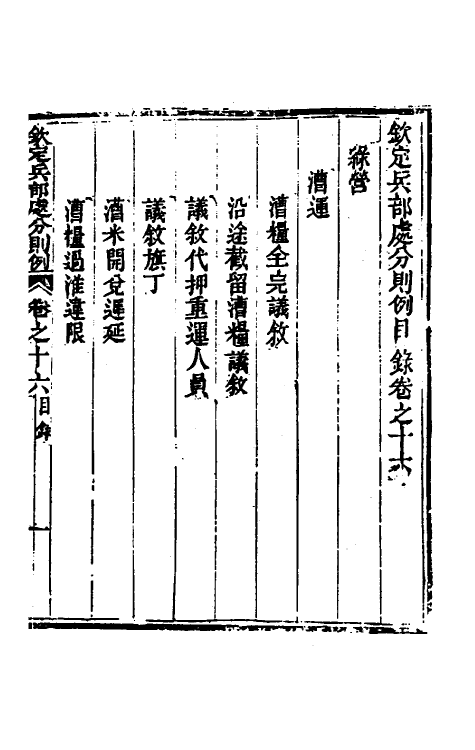 欽定兵部處分則例目錄卷之十六
綠營
漕運
漕糧全完議敘
沿途截留漕糧議敘
議敘代押重運人員
議敘旗丁
漕米開兌遲延
漕糧過淮違限
欽定兵部處分則例 卷之十六目錄 一